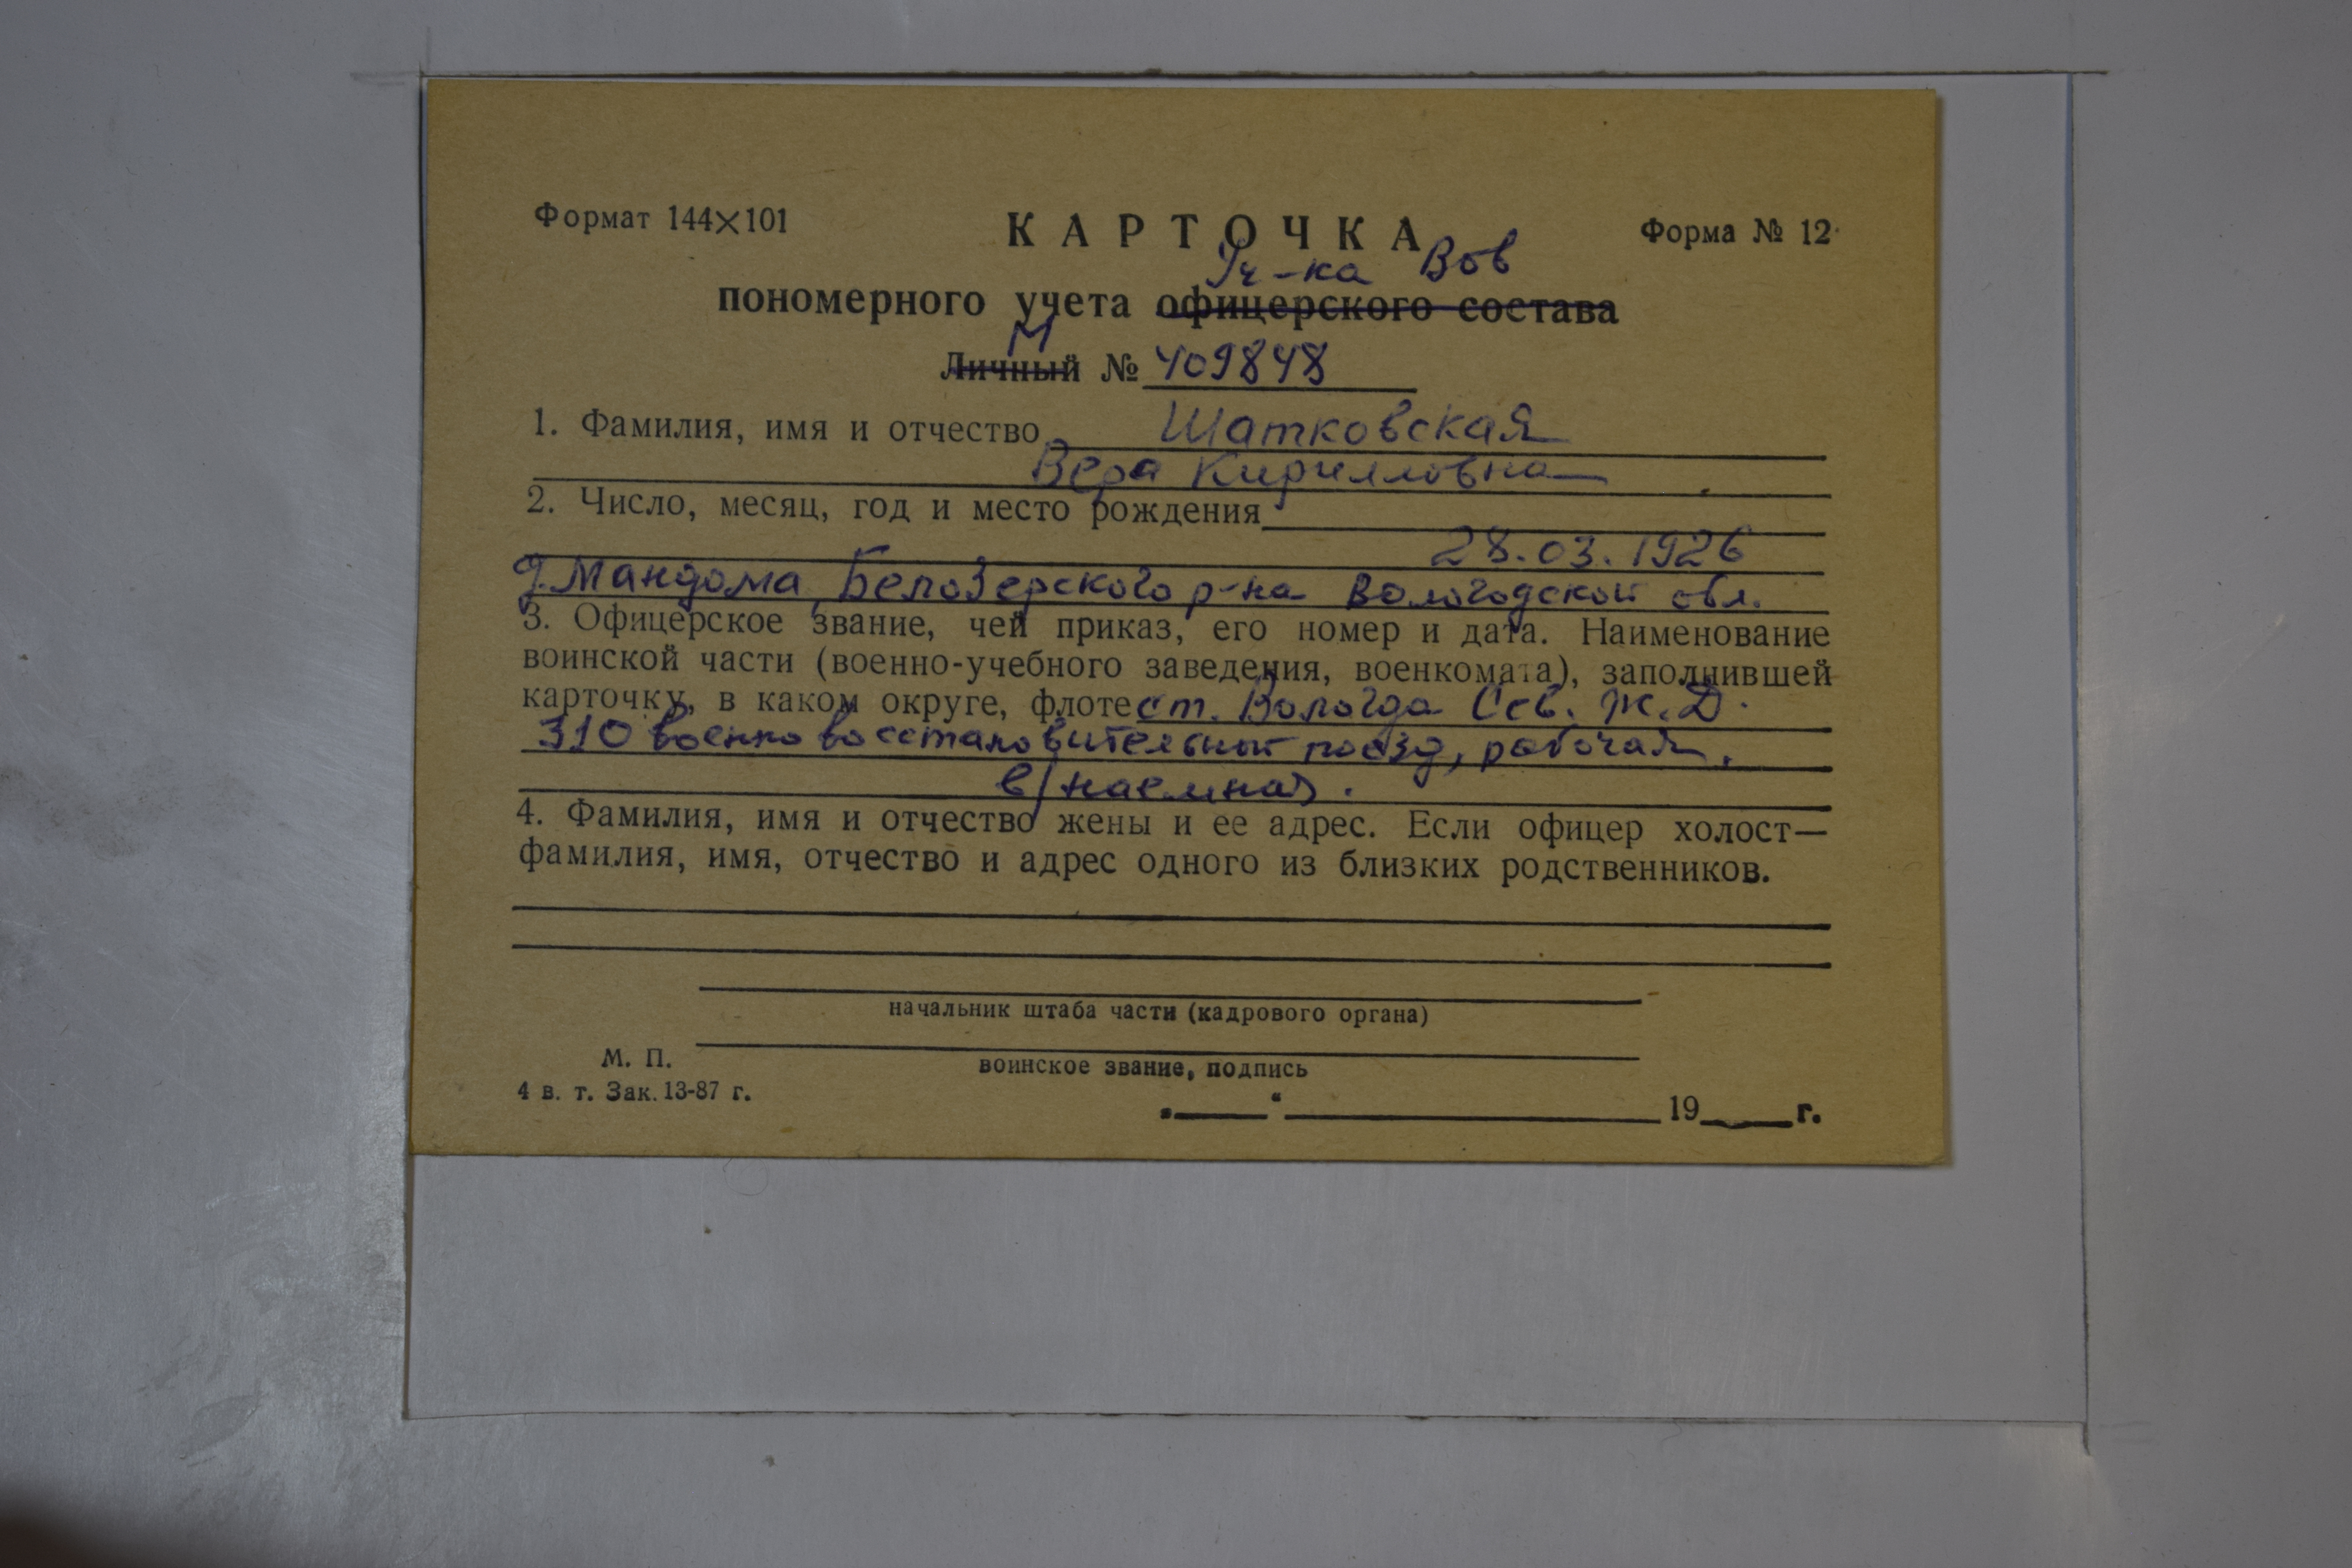 Формат 144×101
КАРТОЧКА
Форма № 12
Уч-ка Вов
пономерного учета офицерского состава
М
Личный № 409848
1. Фамилия, имя и отчество Шатковская
Вера Кирилловна
2. Число, месяц, год и место рождения
28.03.1926
д. Мандома, Белозерского р-на Вологодской обл.
3. Офицерское звание, чей приказ, его номер и дата. Наименование
воинской части (военно-учебного заведения, военкомата), заполнившей
карточку, в каком округе, флоте ст. Вологда Сев. Ж.Д.
310 военно восстановительный поезд, рабочая,
в/наемная.
4. Фамилия, имя и отчество жены и ее адрес. Если офицер холост—
фамилия, имя, отчество и адрес одного из близких родственников.
начальник штаба части (кадрового органа)
М. П.
воинское звание, подпись
4 в. т. Зак. 13-87 г.
„____“ ____________ 19____г.